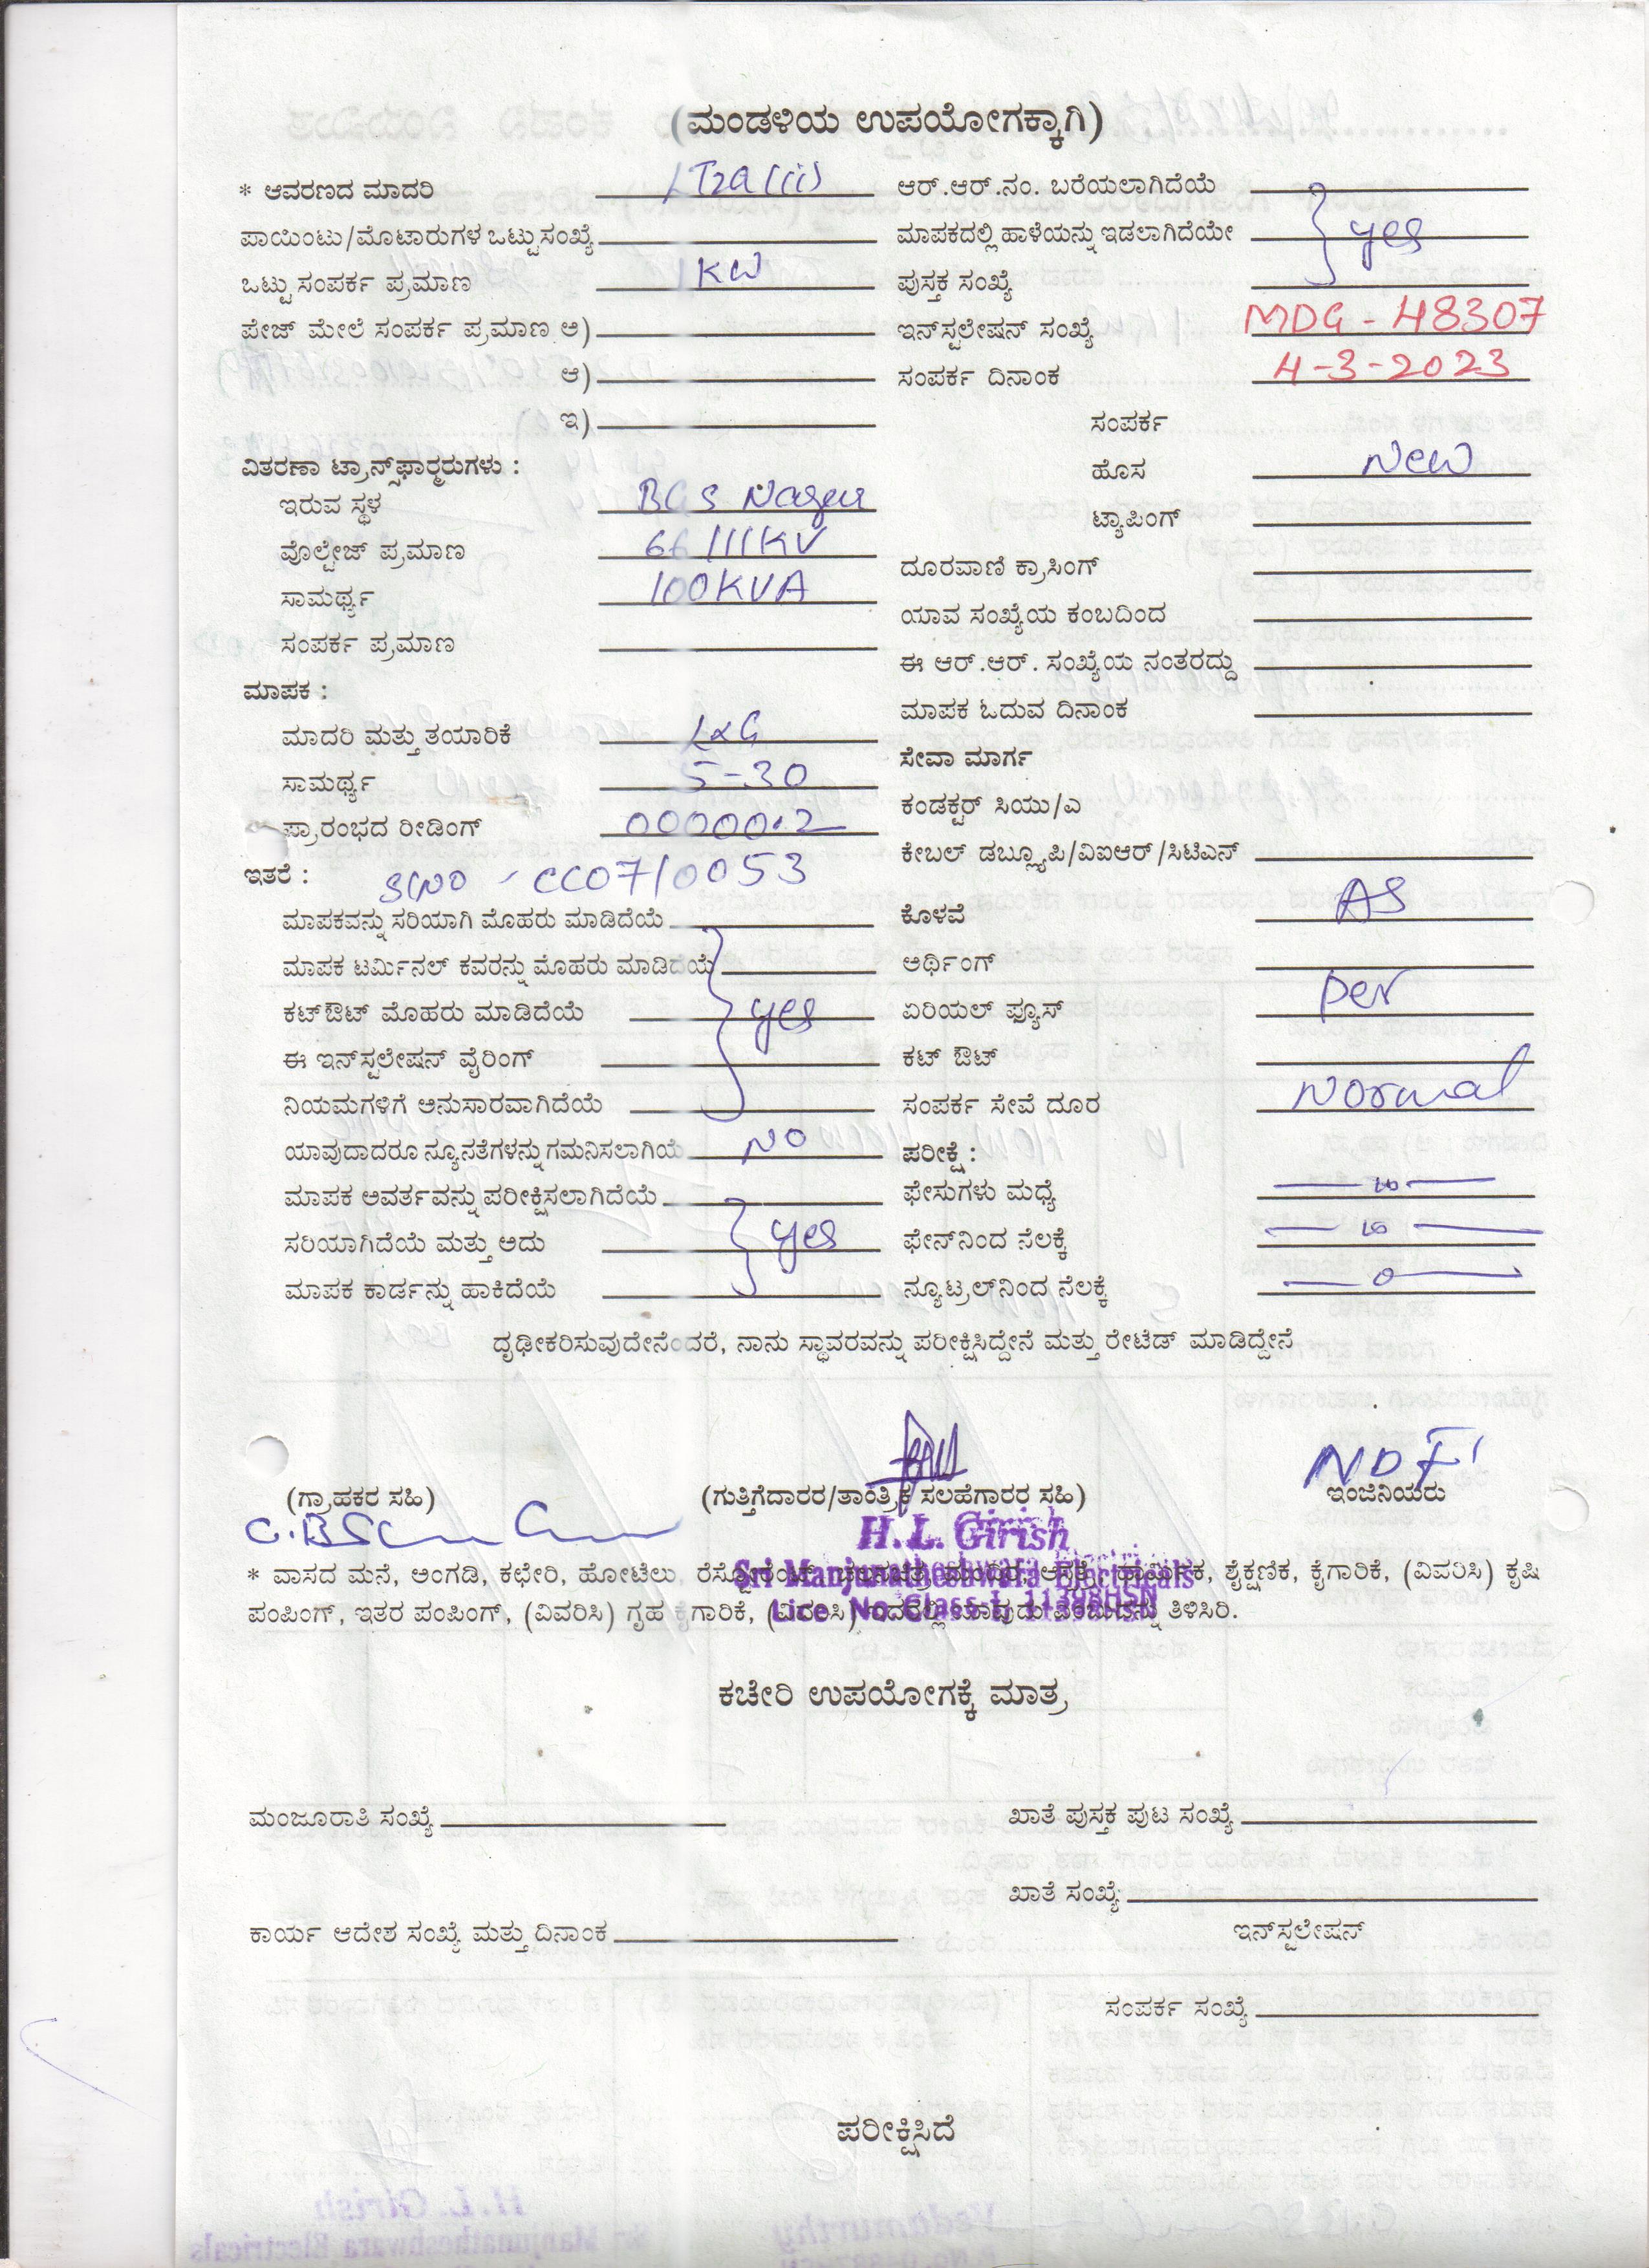 (ಮಂಡಳಿಯ ಉಪಯೋಗಕ್ಕಾಗಿ)
* ಆವರಣದ ಮಾದರಿ LT2a(ii) ಆರ್.ಆರ್.ನಂ. ಬರೆಯಲಾಗಿದೆಯೆ
ಪಾಯಿಂಟು/ಮೊಟಾರುಗಳ ಒಟ್ಟುಸಂಖ್ಯೆ ಮಾಪಕದಲ್ಲಿ ಹಾಳೆಯನ್ನು ಇಡಲಾಗಿದೆಯೇ yes
ಒಟ್ಟು ಸಂಪರ್ಕ ಪ್ರಮಾಣ 1KW ಪುಸ್ತಕ ಸಂಖ್ಯೆ
ಪೇಜ್ ಮೇಲೆ ಸಂಪರ್ಕ ಪ್ರಮಾಣ ಅ) ಇನ್‌ಸ್ಟಲೇಷನ್ ಸಂಖ್ಯೆ MDG - 48307
ಆ) ಸಂಪರ್ಕ ದಿನಾಂಕ 4-3-2023
ಇ) ಸಂಪರ್ಕ
ವಿತರಣಾ ಟ್ರಾನ್ಸ್‌ಫಾರ್‍ಮರುಗಳು : ಹೊಸ New
ಇರುವ ಸ್ಥಳ BGS Nagar ಟ್ಯಾಪಿಂಗ್
ವೊಲ್ಟೇಜ್ ಪ್ರಮಾಣ 66/11KV ದೂರವಾಣಿ ಕ್ರಾಸಿಂಗ್
ಸಾಮರ್ಥ್ಯ 100KVA ಯಾವ ಸಂಖ್ಯೆಯ ಕಂಬದಿಂದ
ಸಂಪರ್ಕ ಪ್ರಮಾಣ ಈ ಆರ್.ಆರ್. ಸಂಖ್ಯೆಯ ನಂತರದ್ದು
ಮಾಪಕ : ಮಾಪಕ ಓದುವ ದಿನಾಂಕ
ಮಾದರಿ ಮತ್ತು ತಯಾರಿಕೆ L&G ಸೇವಾ ಮಾರ್ಗ
ಸಾಮರ್ಥ್ಯ 5-30 ಕಂಡಕ್ಟರ್ ಸಿಯು/ಎ
ಪ್ರಾರಂಭದ ರೀಡಿಂಗ್ 00000.2 ಕೇಬಲ್ ಡಬ್ಲ್ಯೂಪಿ/ವಿಐಆರ್/ಸಿಟಿಎನ್
ಇತರೆ : SlNO - CC0710053
ಮಾಪಕವನ್ನು ಸರಿಯಾಗಿ ಮೊಹರು ಮಾಡಿದೆಯೆ ಕೊಳವೆ AS
ಮಾಪಕ ಟರ್ಮಿನಲ್ ಕವರನ್ನು ಮೊಹರು ಮಾಡಿದೆಯೆ ಅರ್ಥಿಂಗ್
ಕಟ್‌ಔಟ್ ಮೊಹರು ಮಾಡಿದೆಯೆ yes ಏರಿಯಲ್ ಫ್ಯೂಸ್ per
ಈ ಇನ್‌ಸ್ಟಲೇಷನ್ ವೈರಿಂಗ್ ಕಟ್ ಔಟ್
ನಿಯಮಗಳಿಗೆ ಅನುಸಾರವಾಗಿದೆಯೆ ಸಂಪರ್ಕ ಸೇವೆ ದೂರ Normal
ಯಾವುದಾದರೂ ನ್ಯೂನತೆಗಳನ್ನು ಗಮನಿಸಲಾಗಿಯೆ NO ಪರೀಕ್ಷೆ :
ಮಾಪಕ ಅವರ್ತವನ್ನು ಪರೀಕ್ಷಿಸಲಾಗಿದೆಯೆ ಫೇಸುಗಳು ಮಧ್ಯೆ
ಸರಿಯಾಗಿದೆಯೆ ಮತ್ತು ಅದು yes ಫೇನ್‌ನಿಂದ ನೆಲಕ್ಕೆ
ಮಾಪಕ ಕಾರ್ಡನ್ನು ಹಾಕಿದೆಯೆ ನ್ಯೂಟ್ರಲ್‌ನಿಂದ ನೆಲಕ್ಕೆ 0
ದೃಢೀಕರಿಸುವುದೇನೆಂದರೆ, ನಾನು ಸ್ಥಾವರವನ್ನು ಪರೀಕ್ಷಿಸಿದ್ದೇನೆ ಮತ್ತು ರೇಟೆಡ್ ಮಾಡಿದ್ದೇನೆ
(ಗ್ರಾಹಕರ ಸಹಿ) (ಗುತ್ತಿಗೆದಾರರ/ತಾಂತ್ರಿಕ ಸಲಹೆಗಾರರ ಸಹಿ) ಇಂಜಿನಿಯರು
H.L. Girish
Sri Manjunatheshwara Electricals
Lice. No. Class-I, 11398HSN
* ವಾಸದ ಮನೆ, ಅಂಗಡಿ, ಕಛೇರಿ, ಹೋಟೆಲು, ಶೈಕ್ಷಣಿಕ, ಕೈಗಾರಿಕೆ, (ವಿವರಿಸಿ) ಕೃಷಿ
ಪಂಪಿಂಗ್, ಇತರ ಪಂಪಿಂಗ್, (ವಿವರಿಸಿ) ಗೃಹ ಕೈಗಾರಿಕೆ, (ವಿವರಿಸಿ) ಇದರಲ್ಲಿ ಯಾವುದು ಎಂಬುದನ್ನು ತಿಳಿಸಿರಿ.
ಕಚೇರಿ ಉಪಯೋಗಕ್ಕೆ ಮಾತ್ರ
ಮಂಜೂರಾತಿ ಸಂಖ್ಯೆ ಖಾತೆ ಪುಸ್ತಕ ಪುಟ ಸಂಖ್ಯೆ
ಖಾತೆ ಸಂಖ್ಯೆ
ಕಾರ್ಯ ಆದೇಶ ಸಂಖ್ಯೆ ಮತ್ತು ದಿನಾಂಕ ಇನ್‌ಸ್ಟಲೇಷನ್
ಸಂಪರ್ಕ ಸಂಖ್ಯೆ
ಪರೀಕ್ಷಿಸಿದೆ